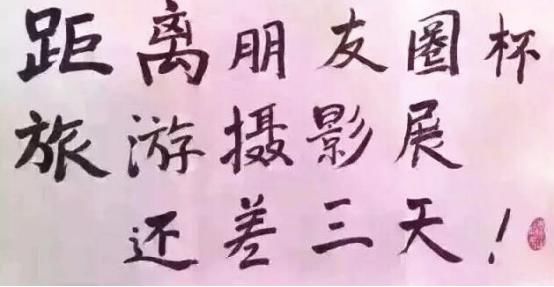 距离朋友圈杯
旅游摄影展
还差三天！